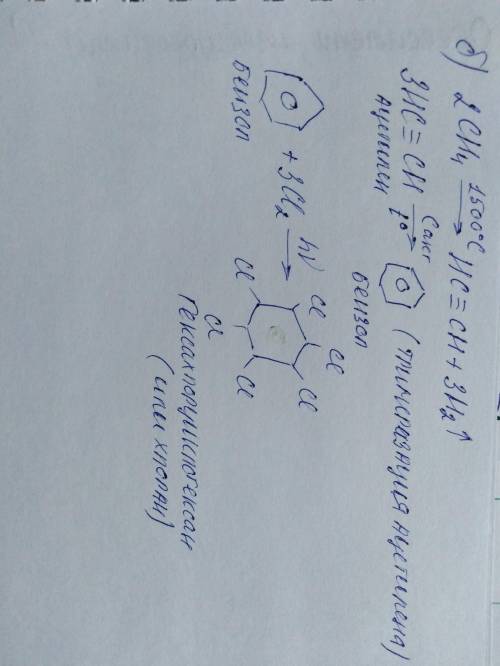 б) 2CH₄ 1500°C→ HC≡CH + 3H₂↑
3HC≡CH Cакт t°→ (тримеризация ацетилена)
ацетилен бензол
+ 3Cl₂ hν→ Cl Cl Cl Cl Cl Cl
бензол
гексахлорциклогексан
(или хлоран)